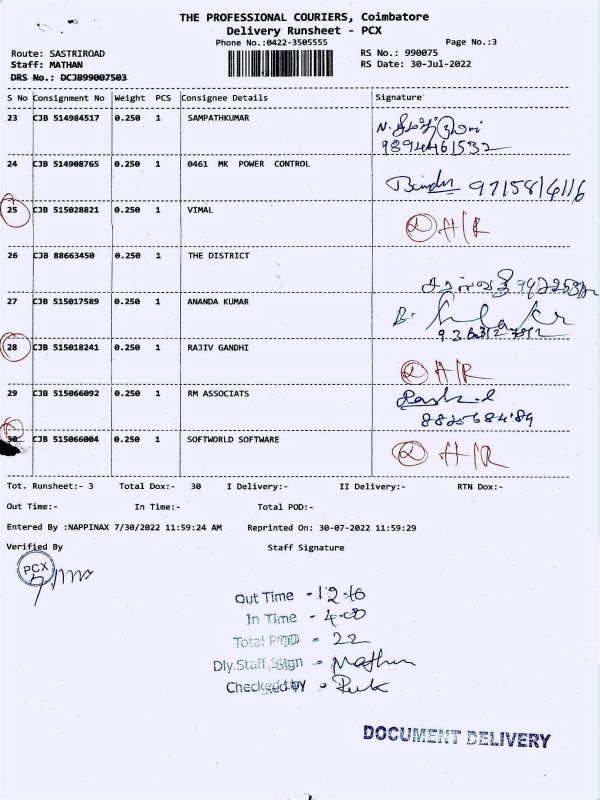 THE PROFESSIONAL COURIERS, Coimbatore
Delivery Runsheet - PCX
Phone No.:0422-3505555
Page No.:3
Route: SASTRIROAD
RS No.: 990075
Staff: MATHAN
RS Date: 30-Jul-2022
DRS No.: DCJB99007503
S No Consignment No Weight PCS Consignee Details Signature
23 CJB 514984517 0.250 1 SAMPATHKUMAR
9894461532
24 CJB 514908765 0.250 1 0461 MK POWER CONTROL
25 CJB 515028821 0.250 1 VIMAL A/R
26 CJB 88663450 0.250 1 THE DISTRICT
27 CJB 515017589 0.250 1 ANANDA KUMAR
28 CJB 515018241 0.250 1 RAJIV GANDHI A/R
29 CJB 515066092 0.250 1 RM ASSOCIATS
30 CJB 515066004 0.250 1 SOFTWORLD SOFTWARE A/R
Tot. Runsheet:- 3 Total Dox:- 30 I Delivery:- II Delivery:- RTN Dox:-
Out Time:- In Time:- Total POD:-
Entered By :NAPPINAX 7/30/2022 11:59:24 AM Reprinted On: 30-07-2022 11:59:29
Verified By Staff Signature
PCX
Out Time - 12-40
In Time - 4-00
Total POD - 22
Dly.Staff,Sign - Mathan
Checked by
DOCUMENT DELIVERY